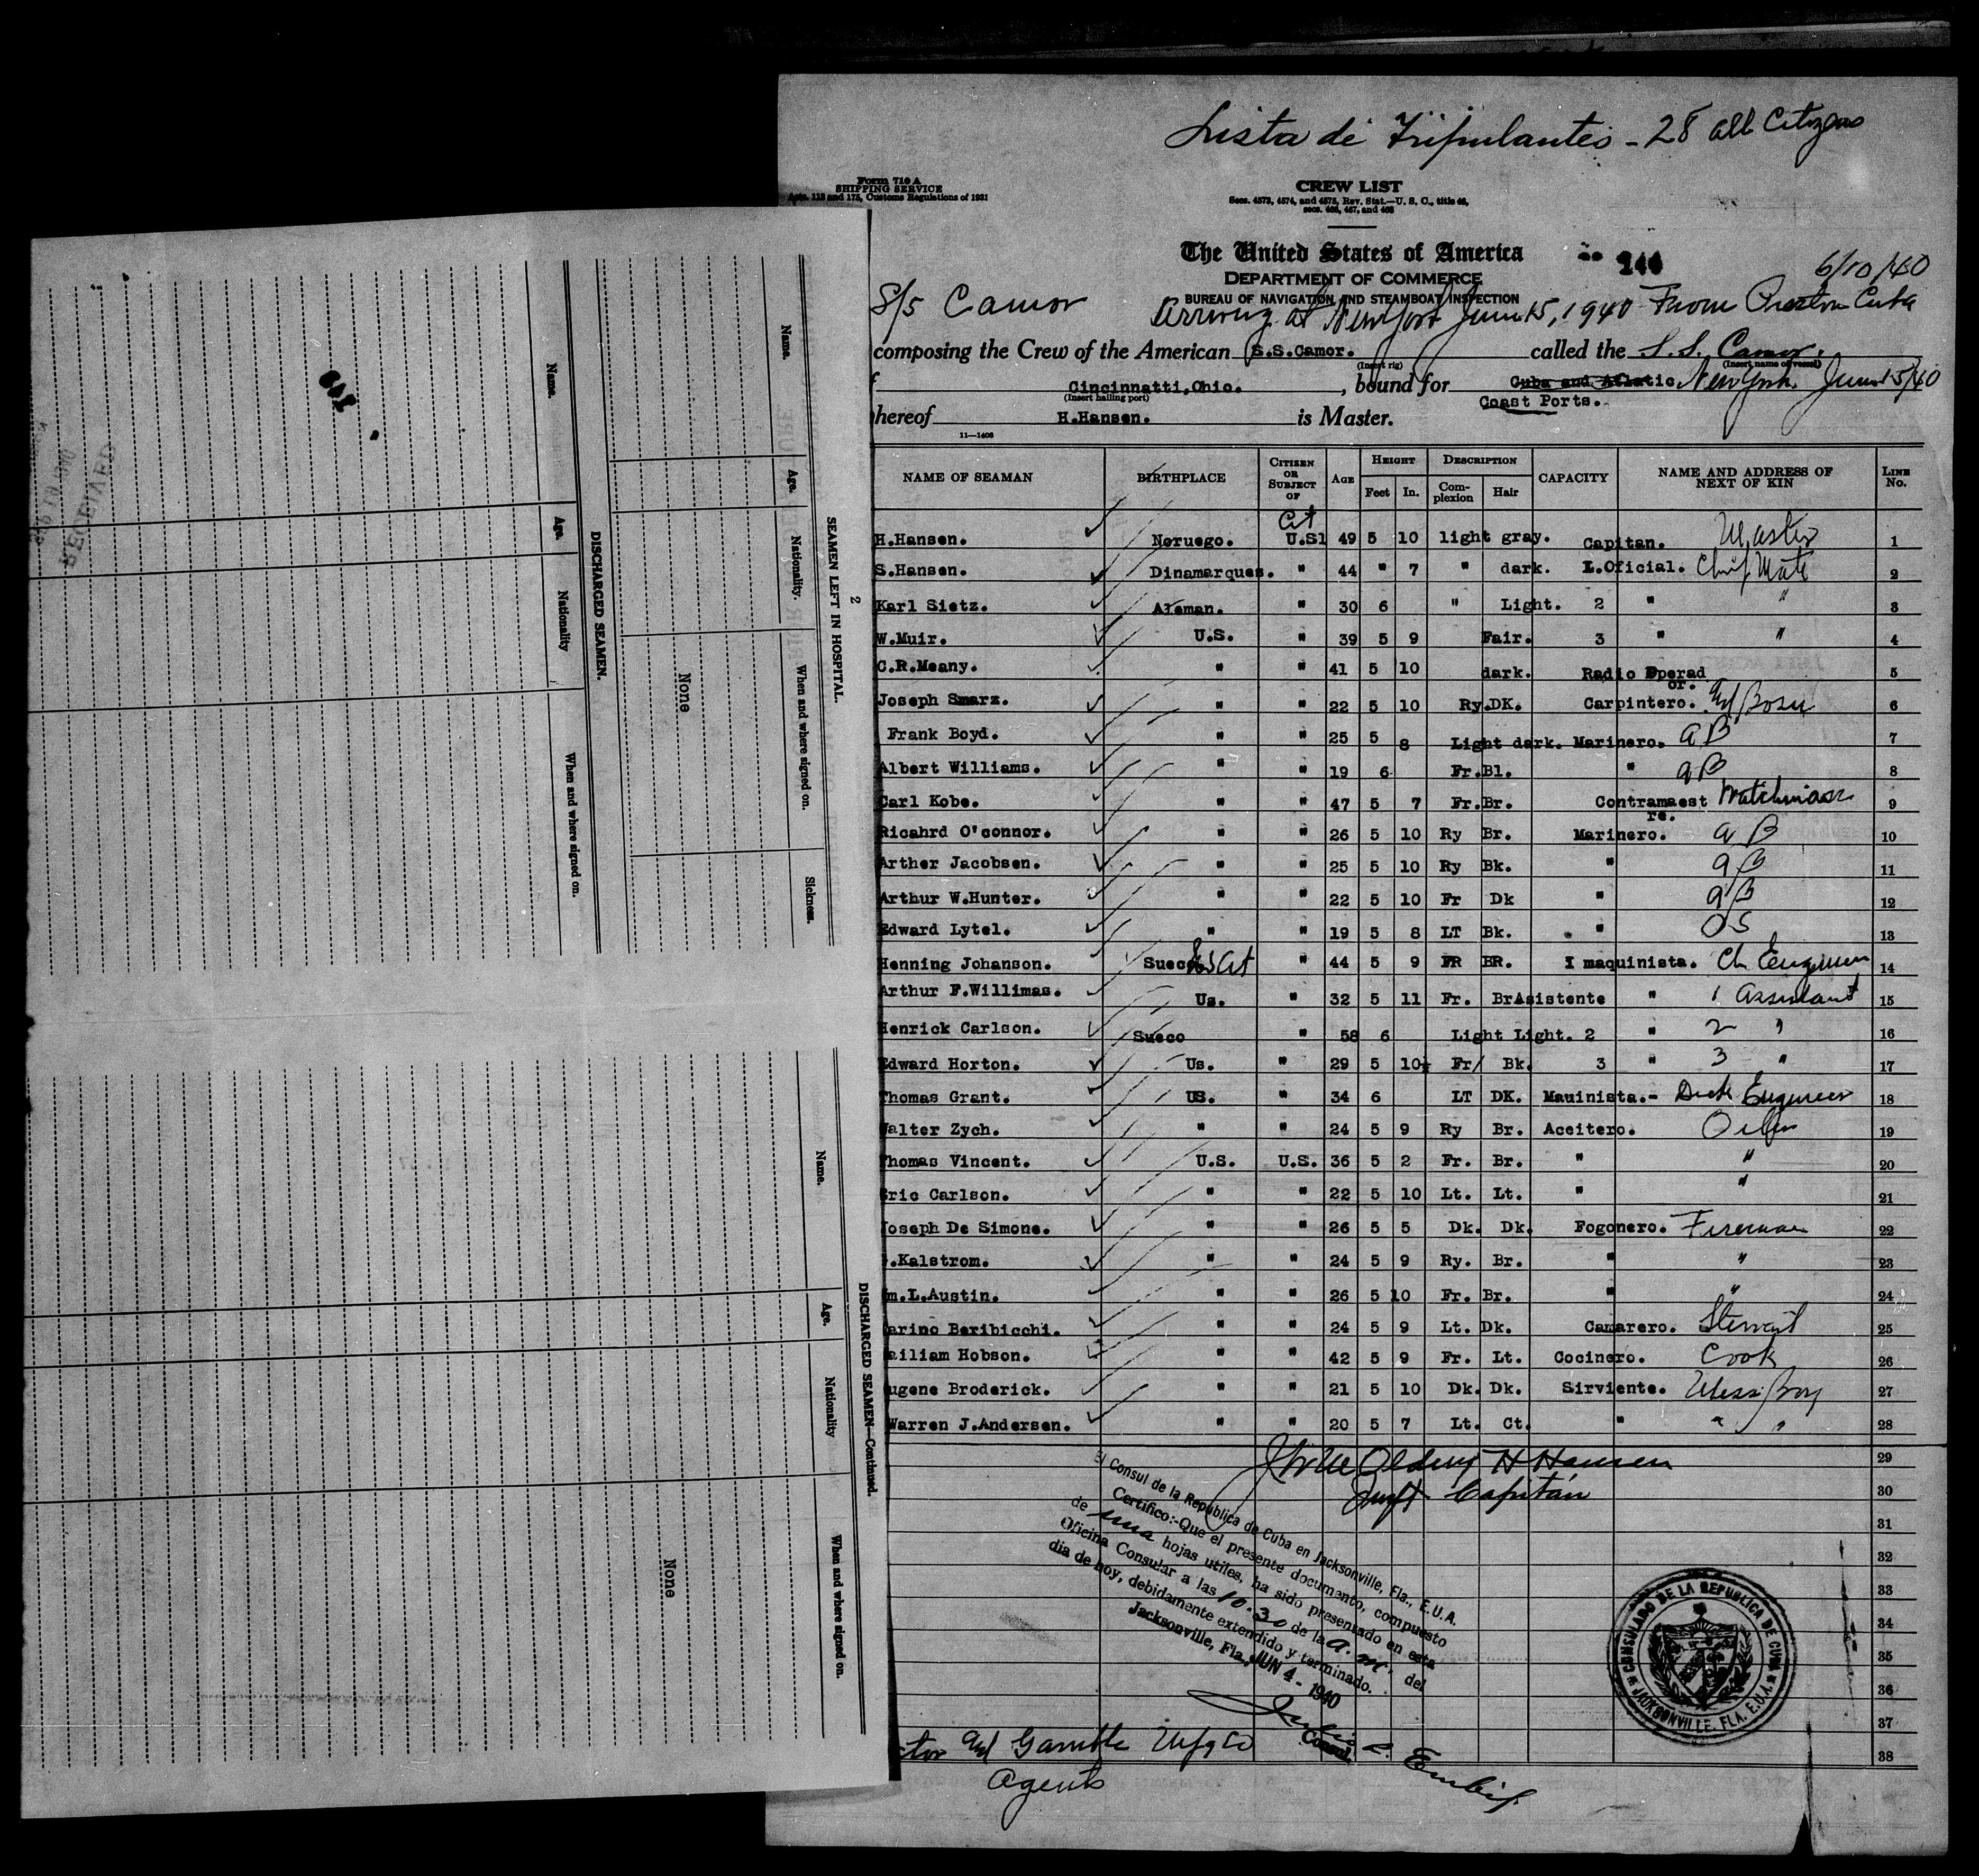 Lista de Tripulantes - 28 all Citizens
Form 710 A
SHIPPING SERVICE
Arts. 113 and 175, Customs Regulations of 1931
CREW LIST
Secs. 4573, 4574, and 4575, Rev. Stat.—U. S. C., title 46,
secs. 466, 467, and 468
The United States of America
DEPARTMENT OF COMMERCE
BUREAU OF NAVIGATION AND STEAMBOAT INSPECTION
6/10/40
S/S Camor
Arriving at New York June 15, 1940 From Preston Cuba
composing the Crew of the American S.S.Camor. called the S.S. Camor.
(Insert rig) (Insert name of vessel)
Cincinnatti,Ohio. , bound for Cuba and Atlatic New York June 15/40
(Insert hailing port) Coast Ports.
hereof H.Hansen. is Master.
11—1408
NAME OF SEAMAN BIRTHPLACE CITIZEN OR SUBJECT OF AGE HEIGHT Feet In. DESCRIPTION Complexion Hair CAPACITY NAME AND ADDRESS OF NEXT OF KIN LINE No.
Cit
H.Hansen. Noruego. U.S1 49 5 10 light gray. Capitan. Master 1
S.Hansen. Dinamarques. " 44 " 7 " dark. I.Oficial. Chief Mate 2
Karl Sietz. Aleman. " 30 6 " Light. 2 " " 3
W.Muir. U.S. " 39 5 9 Fair. 3 " " 4
C.R.Meany. " " 41 5 10 dark. Radio Operad or. 5
Joseph Smarz. " " 22 5 10 Ry.DK. Carpintero. Bosn 6
Frank Boyd. " " 25 5 8 Light dark. Marinero. AB 7
Albert Williams. " " 19 6 Fr.Bl. " AB 8
Carl Kobe. " " 47 5 7 Fr.Br. Contramaest re. Watchman 9
Ricahrd O'connor. " " 26 5 10 Ry Br. Marinero. AB 10
Arther Jacobsen. " " 25 5 10 Ry Bk. " AB 11
Arthur W.Hunter. " " 22 5 10 Fr Dk " AB 12
Edward Lytel. " " 19 5 8 LT Bk. " OS 13
Henning Johanson. Sueco US Cit " 44 5 9 FR BR. I maquinista. Ch Engineer 14
Arthur F.Willimas. Us. " 32 5 11 Fr. Br Asistente " 1 Assistant 15
Henrick Carlson. Sueco " 58 6 Light Light. 2 " 2 " 16
Edward Horton. Us. " 29 5 10½ Fr/ Bk. 3 " 3 " 17
Thomas Grant. US. " 34 6 LT DK. Mauinista.- Deck Engineer 18
Walter Zych. " " 24 5 9 Ry Br. Aceitero. Oiler 19
Thomas Vincent. U.S. U.S. 36 5 2 Fr. Br. " " 20
Eric Carlson. " " 22 5 10 Lt. Lt. " " 21
Joseph De Simone. " " 26 5 5 Dk. Dk. Fogonero. Fireman 22
.Kalstrom. " " 24 5 9 Ry. Br. " " 23
m.L.Austin. " " 26 5 10 Fr. Br. " " 24
arino Beribicchi. " " 24 5 9 Lt. Dk. Camarero. Steward 25
ailiam Hobson. " " 42 5 9 Fr. Lt. Cocinero. Cook 26
ugene Broderick. " " 21 5 10 Dk. Dk. Sirviente. Mess Boy 27
Warren J.Andersen. " " 20 5 7 Lt. Ct. " " " 28
H Hansen 29
Capitán 30
31
32
33
34
35
36
37
38
El Consul de la Republica de Cuba en Jacksonville, Fla., E.U.A.
Certifico:-Que el presente documento, compuesto
de una hojas utiles, ha sido presentado en esta
Oficina Consular a las 10.30 de la a.m. del
dia de hoy, debidamente extendido y terminado.
Jacksonville, Fla., JUN 4 - 1940
Consul.
CONSULADO DE LA REPUBLICA DE CUBA
JACKSONVILLE, FLA. E.U.A.
Gamble Mfg Co
Agents
2
SEAMEN LEFT IN HOSPITAL.
Name. Age. Nationality. When and where signed on. Sickness.
None
DISCHARGED SEAMEN.
Name. Age. Nationality When and where signed on.
RECEIVED
DISCHARGED SEAMEN—Continued.
Name. Age. Nationality When and where signed on.
None